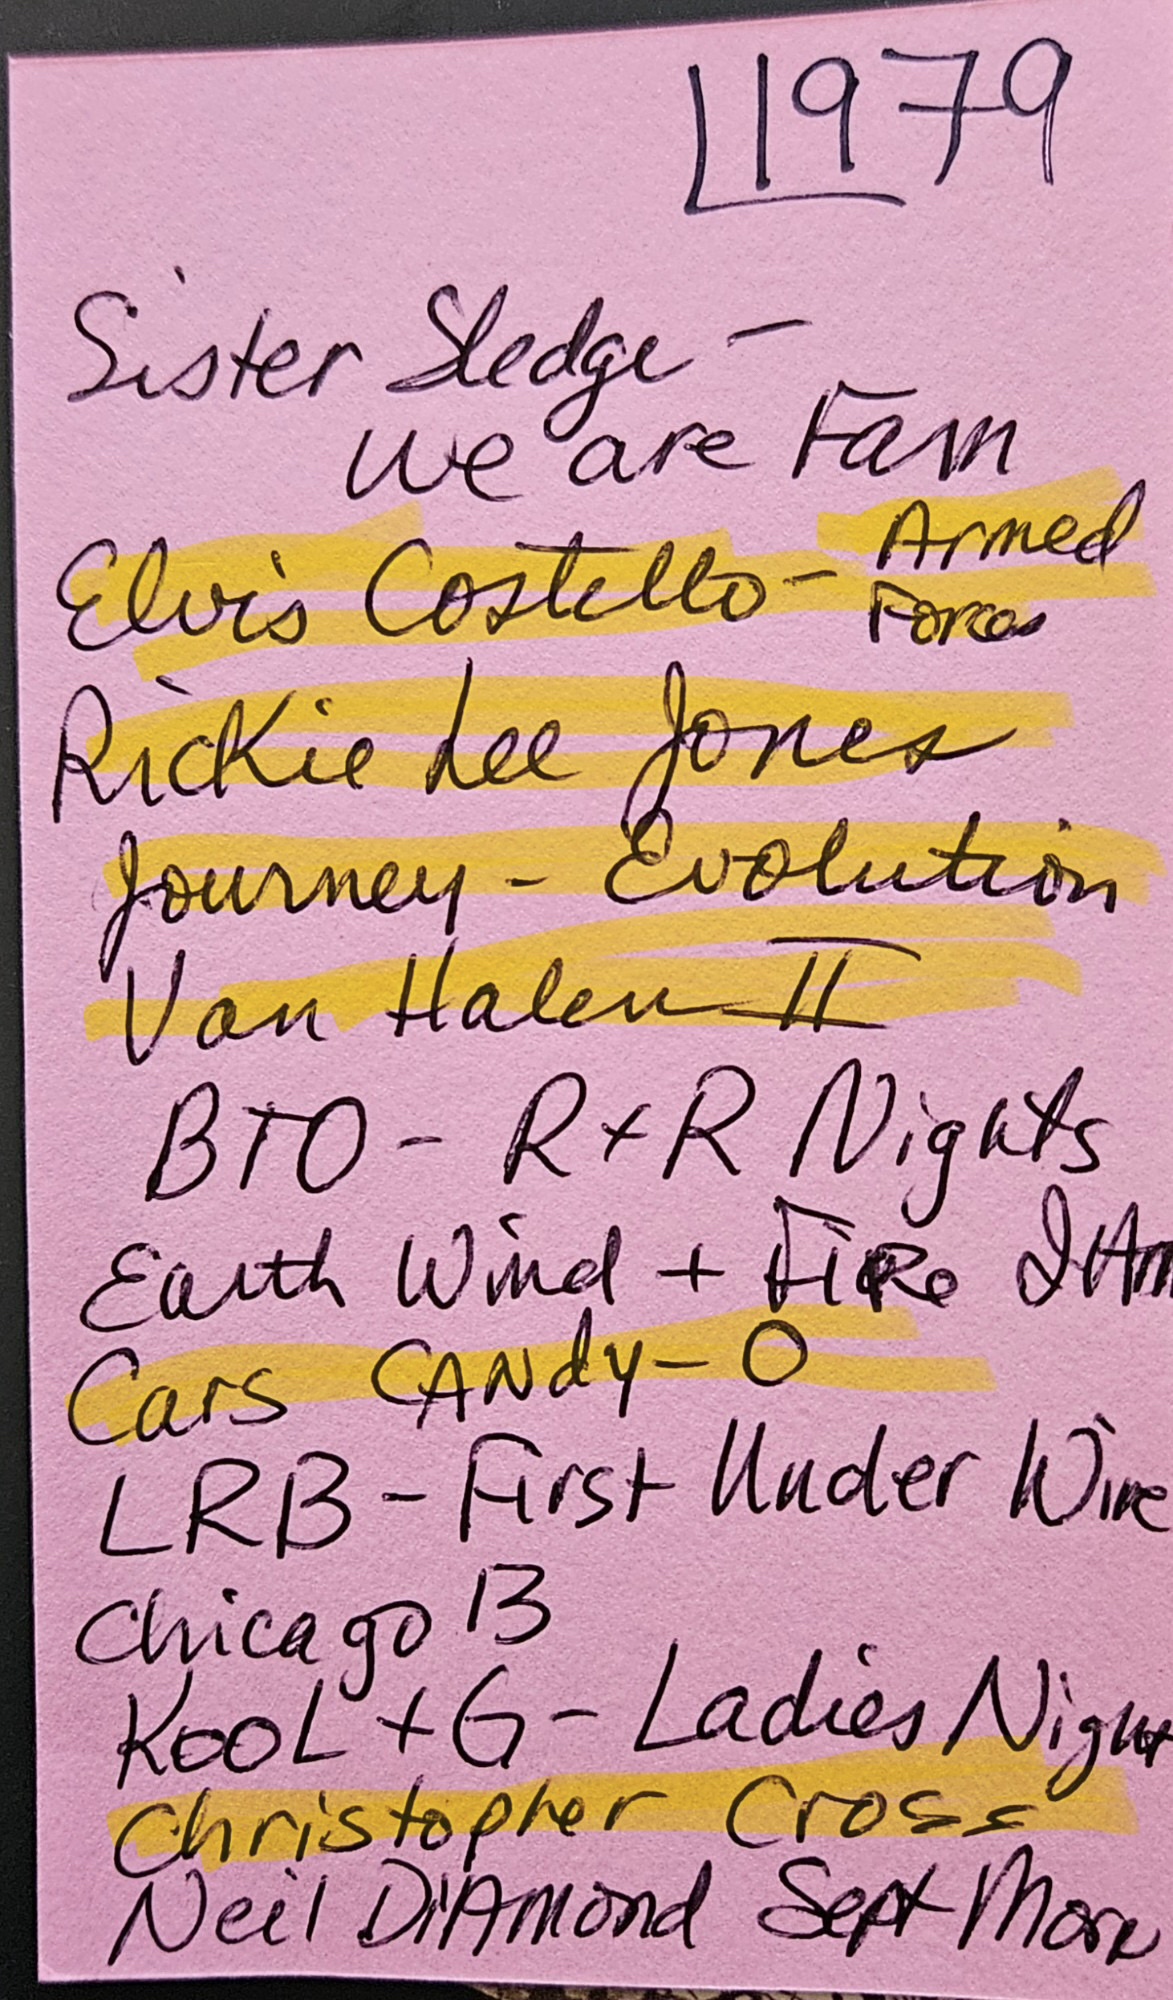 1979
Sister Sledge -
We are Fam
Elvis Costello - Armed
Forces
Rickie Lee Jones
Journey - Evolution
Van Halen II
BTO - R+R Nights
Earth Wind + Fire I Am
Cars CANdy-O
LRB - First Under Wire
Chicago 13
KooL + G - Ladies Night
Christopher Cross
Neil DiAmond Sept Morn